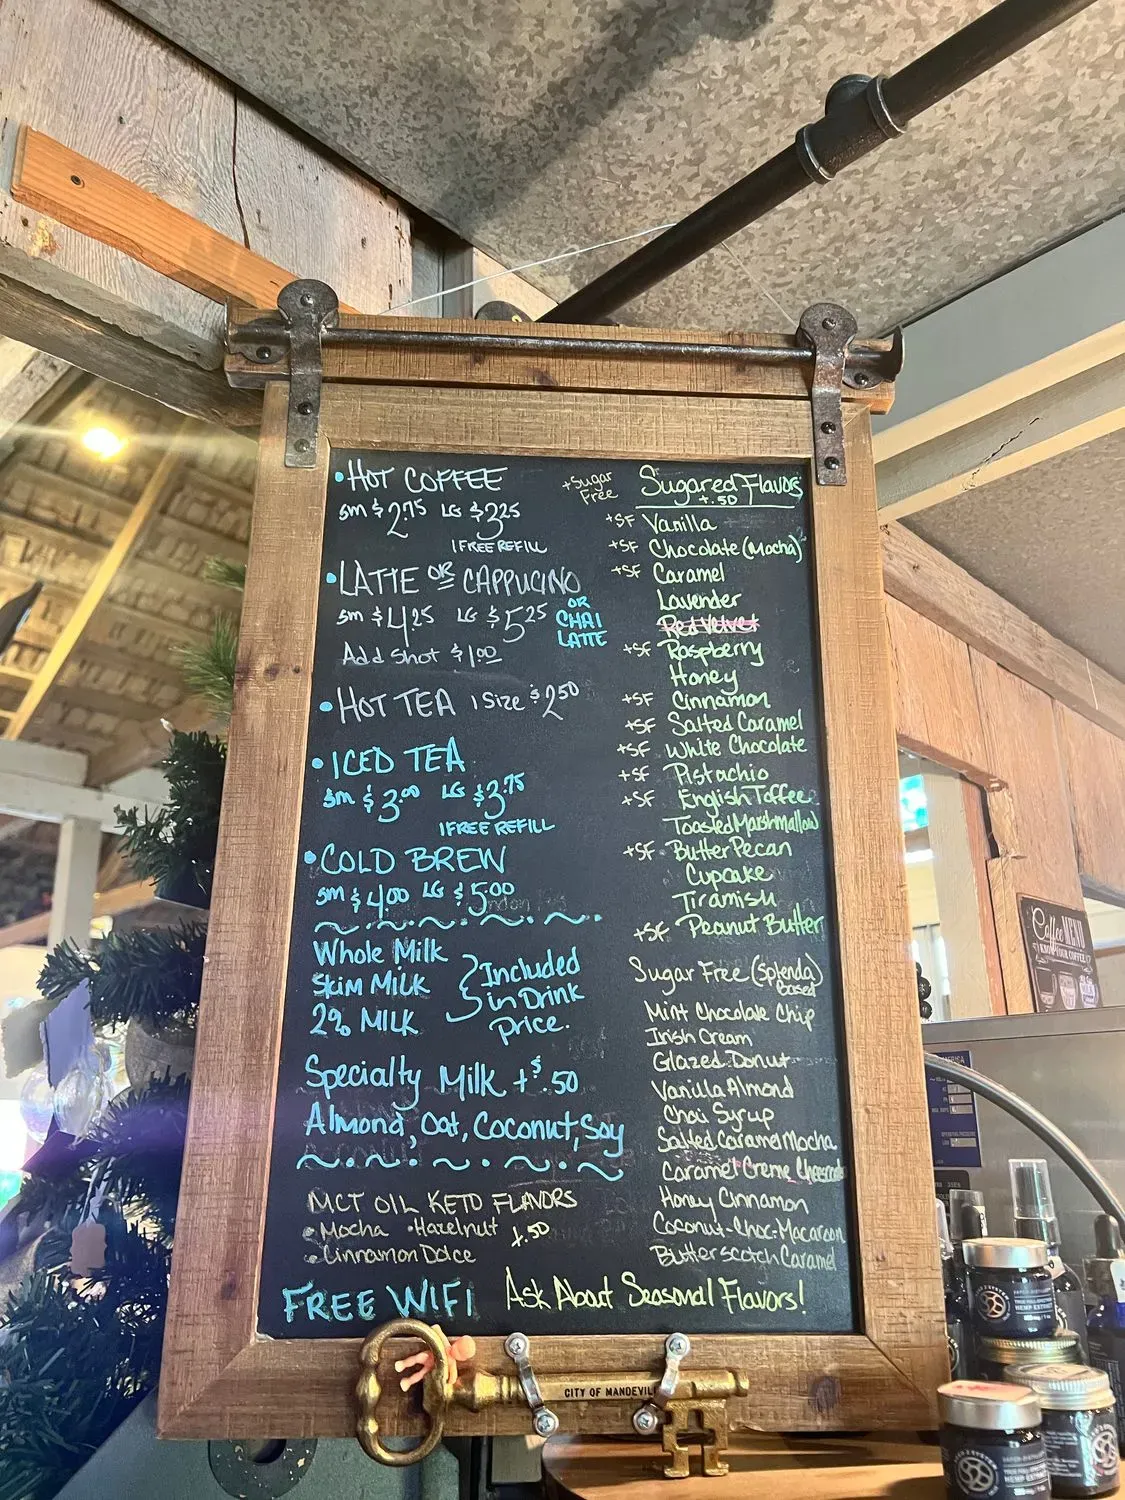 • HOT COFFEE
SM $2.75 LG $3.25
1 FREE REFILL
• LATTE OR CAPPUCINO
SM $4.25 LG $5.25
OR
CHAI
LATTE
Add Shot $1.00
• HOT TEA 1 Size $2.50
• ICED TEA
SM $3.00 LG $3.75
1 FREE REFILL
• COLD BREW
SM $4.00 LG $5.00
Whole Milk
Skim MILK
2% MILK
Included
in Drink
price.
Specialty Milk + $.50
Almond, Oat, Coconut, Soy
MCT OIL KETO FLAVORS
• Mocha • Hazelnut +.50
• Cinnamon Dolce
FREE WIFI
+Sugar
Free
Sugared Flavors
+.50
+SF Vanilla
+SF Chocolate (Mocha)
+SF Caramel
Lavender
Red Velvet
+SF Raspberry
Honey
+SF Cinnamon
+SF Salted Caramel
+SF White Chocolate
+SF Pistachio
+SF English Toffee
Toasted Marshmallow
+SF Butter Pecan
Cupcake
Tiramisu
+SF Peanut Butter
Sugar Free (Splenda)
Based
Mint Chocolate Chip
Irish Cream
Glazed Donut
Vanilla Almond
Chai Syrup
Salted Caramel Mocha
Caramel Creme
Honey Cinnamon
Coconut-Choc-Macaroon
Butterscotch Caramel
Ask About Seasonal Flavors!
CITY OF MANDEVIL
Coffee MENU
KNOW YOUR COFFEE
HEMP EXTRACT